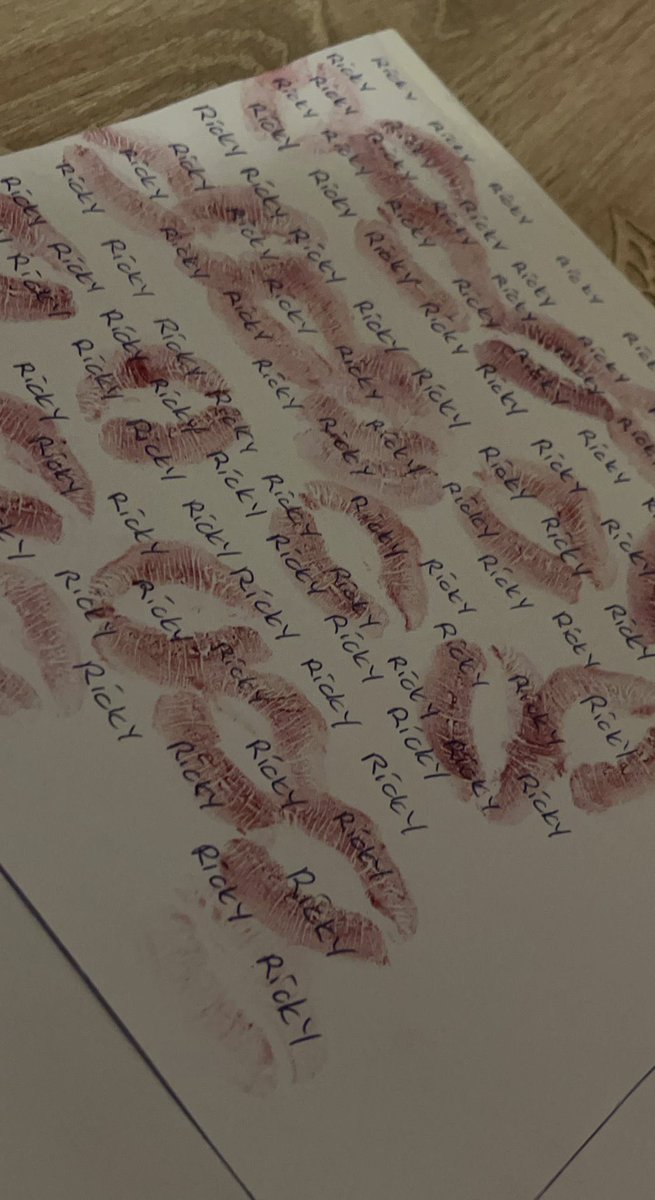 Ricky Ricky
Ricky Ricky Ricky Ricky
Ricky Ricky Ricky Ricky Ricky
Ricky Ricky Ricky Ricky Ricky Ricky
Ricky Ricky Ricky Ricky Ricky Ricky Ricky
Ricky Ricky Ricky Ricky Ricky Ricky Ricky
Ricky Ricky Ricky Ricky Ricky Ricky Ricky
Ricky Ricky Ricky Ricky Ricky Ricky Ricky
Ricky Ricky Ricky Ricky Ricky Ricky Ricky
Ricky Ricky Ricky Ricky Ricky Ricky Ricky
Ricky Ricky Ricky Ricky Ricky Ricky
Ricky Ricky Ricky Ricky Ricky Ricky
Ricky Ricky Ricky Ricky Ricky
Ricky Ricky Ricky Ricky
Ricky Ricky Ricky
Ricky Ricky
Ricky